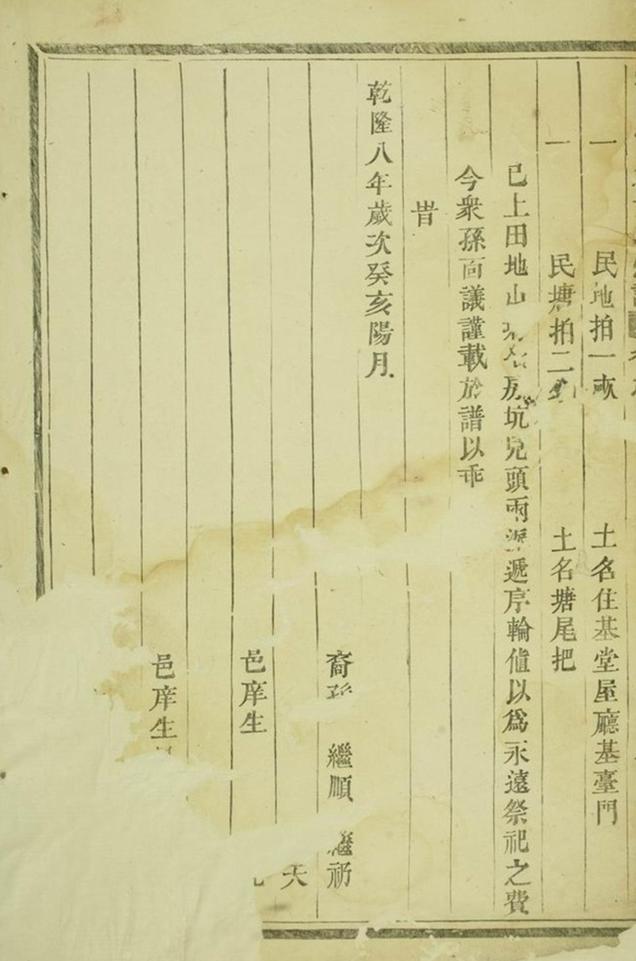 一 民地拍一畝 土名住基堂屋廳基臺門
一 民塘拍二 土名塘尾把
已上田地山 房坑兒頭兩派遞序輪值以爲永遠祭祀之費
今衆孫面議謹載於譜以垂
昔
乾隆八年歲次癸亥陽月
裔孫 繼順 繼祈
天
邑庠生
邑庠生